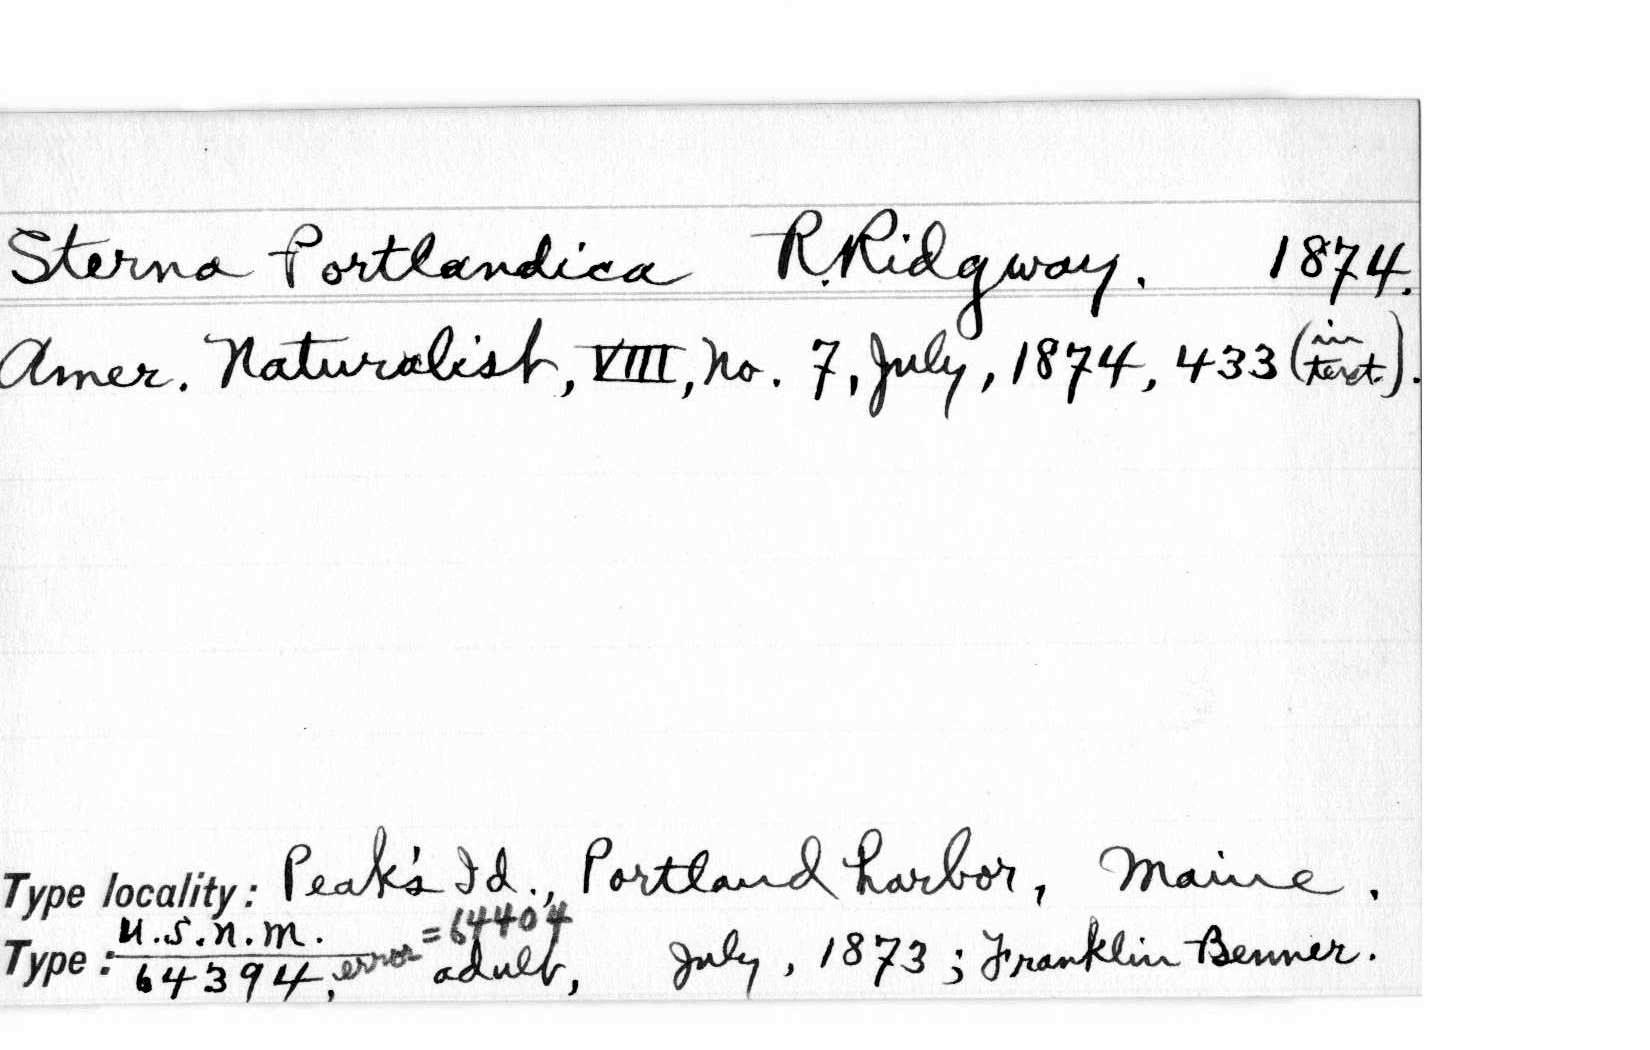 Sterna Portlandica R. Ridgway. 1874.
Amer. Naturalist, VIII, No. 7, July, 1874, 433 (in text).
Type locality: Peak's Id., Portland harbor, Maine.
Type: U.S.N.M. 64394, error = 64404 adult, July, 1873; Franklin Benner.